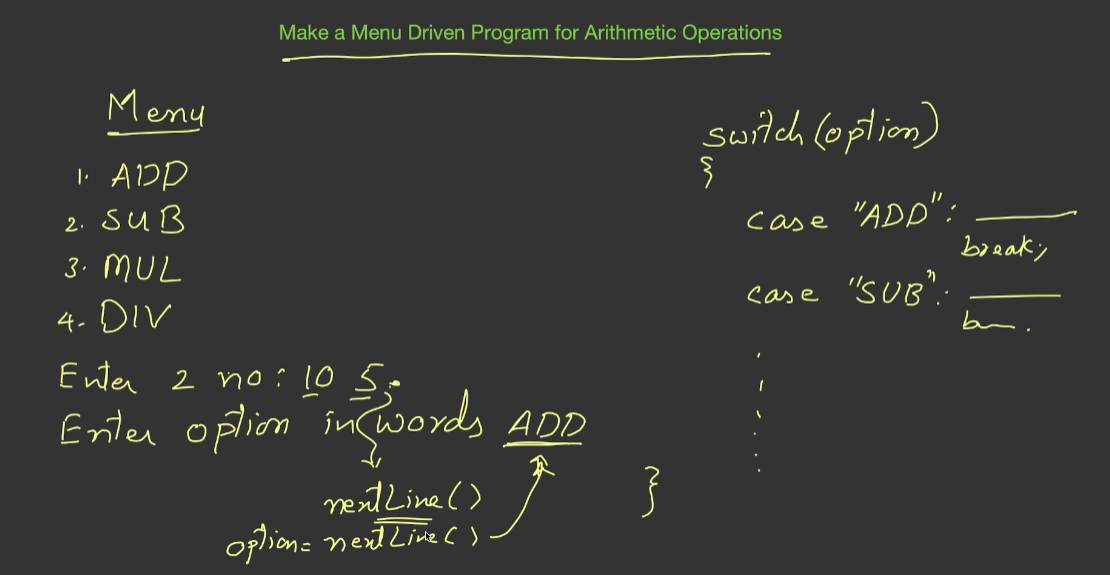 Make a Menu Driven Program for Arithmetic Operations
Menu
1. ADD
2. SUB
3. MUL
4. DIV
Enter 2 no: 10 5
Enter option in words ADD
nextLine()
option= nextLine()
switch(option)
{
case "ADD":
break;
case "SUB":
b
}